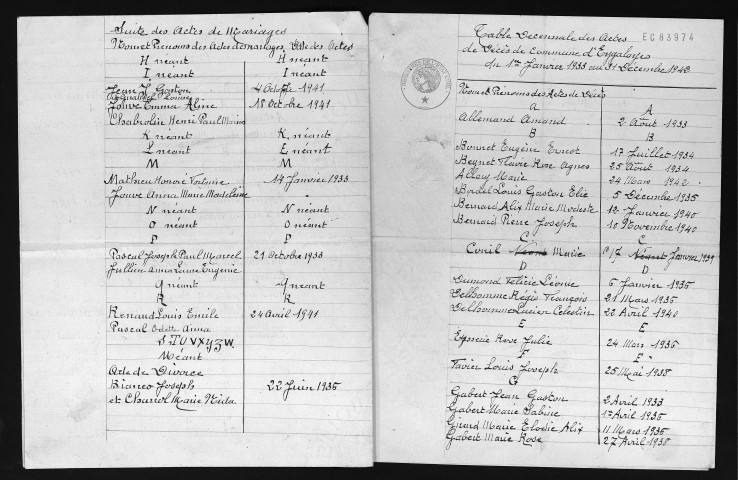 Suite des Actes de Mariages
Nom et Prénoms des Actes de mariages, Date des Actes
H néant H néant
I néant I néant
Jean J. Gaston 4 Octobre 1941
Louise
Jouve Emma Aline 18 Octobre 1941
Chabrolin Henri Paul Marius
K néant K néant
L néant L néant
M M
Mathieu Honoré Antoine 14 Janvier 1933
Jouve Anna Marie Madeleine
N néant N néant
O néant O néant
P P
Pascal Joseph Paul Marcel 21 Octobre 1933
Jullien Anna Louise Eugénie
Q néant Q néant
R R
Renaud Louis Emile 24 Avril 1941
Pascal Odette Anna
S T U V X Y Z W
Néant
Acte de Divorce
Bianco Joseph 22 Juin 1935
et Charrol Marie Nida
Table Décennale des Actes
EC 83974
de Décès de commune d'Eygalayes
du 1er Janvier 1933 au 31 Décembre 1942
Nom et Prénoms des Actes de Décès
A A
Allemand Amand 2 Août 1933
B B
Bonnet Eugène Ernest 17 Juillet 1934
Beynet Flavie Rose Agnès 25 Août 1934
Marie 24 Mars 1942
Bordel Louis Gaston Elie 5 Décembre 1935
Bernard Alix Marie Modeste 12 Janvier 1940
Bernard Pierre Joseph 10 Novembre 1940
C C
Conil Marie 17 Janvier 1939
D D
Dumond Félicie Léonie 6 Janvier 1935
Delhomme Régis François 21 Mars 1935
Delhomme Lucien Célestin 22 Avril 1940
E E
Eysserie Rose Julie 24 Mars 1935
F F
Favier Louis Joseph 25 Mai 1938
G
Gabert Jean Gaston 2 Avril 1933
Gabert Marie Sabine 17 Avril 1935
Girard Marie Elodie Alix 11 Mars 1935
Gabert Marie Rose 27 Avril 1938